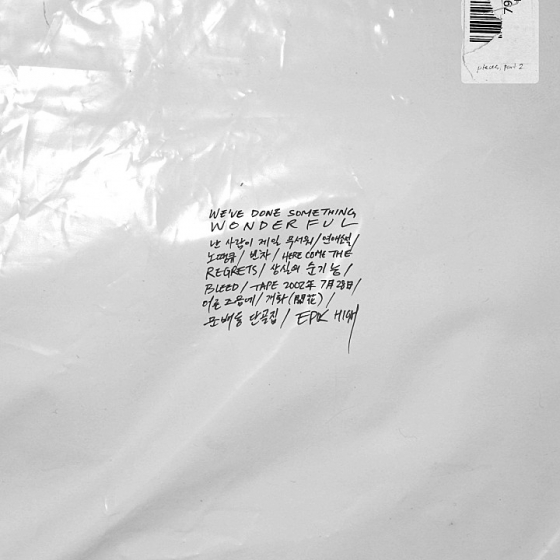 79
pieces, part 2
WE'VE DONE SOMETHING
WONDERFUL
난 사람이 제일 무서워/연애소설/
노땡큐/빈차/HERE COME THE
REGRETS/상실의 순기능/
BLEED/TAPE 2002年 7月 28日/
어른 즈음에/개화(開花)/
문배동 단골집/EPIK HIGH